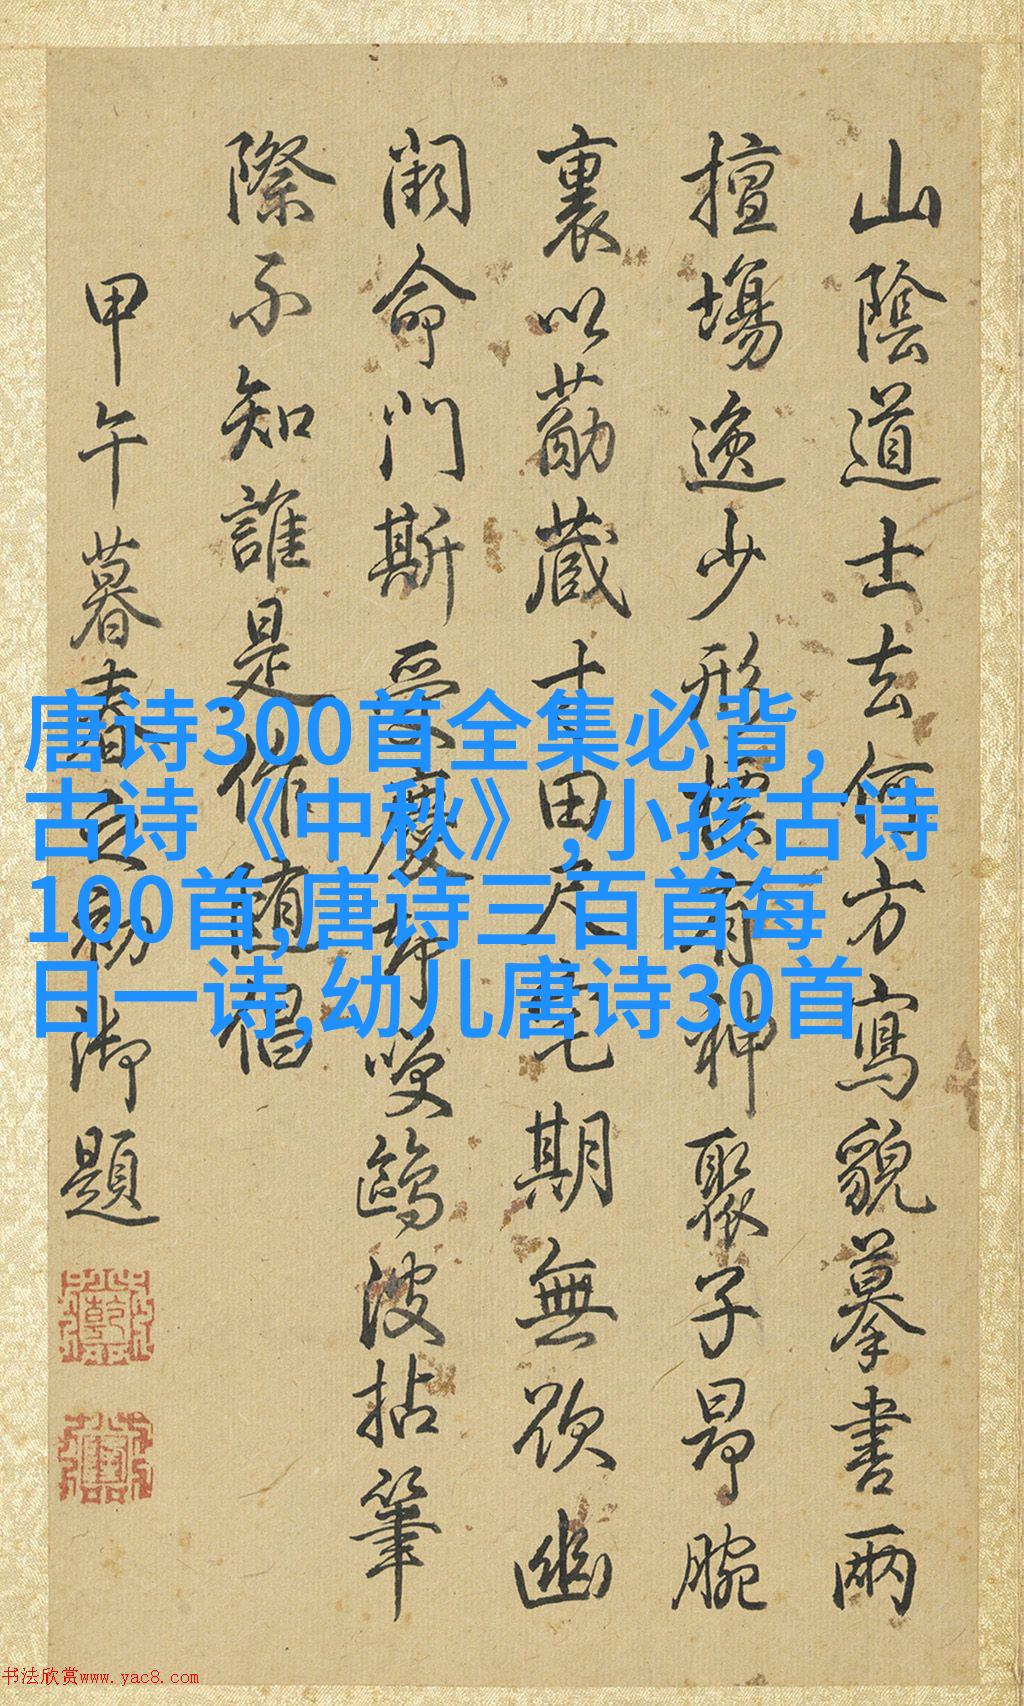 山陰道士去何方寫貌摹書兩
擅場逸少形有神聚子昂腕
裏以藏寸田尺宅期無欲幽
闕命門斯受度却咲鷗波拈筆
際不知誰是作隨倡
甲午暮春之初御題
唐诗300首全集必背,
古诗《中秋》,小孩古诗
100首,唐诗三百首每
日一诗,幼儿唐诗30首
书法欣赏www.yac8.com